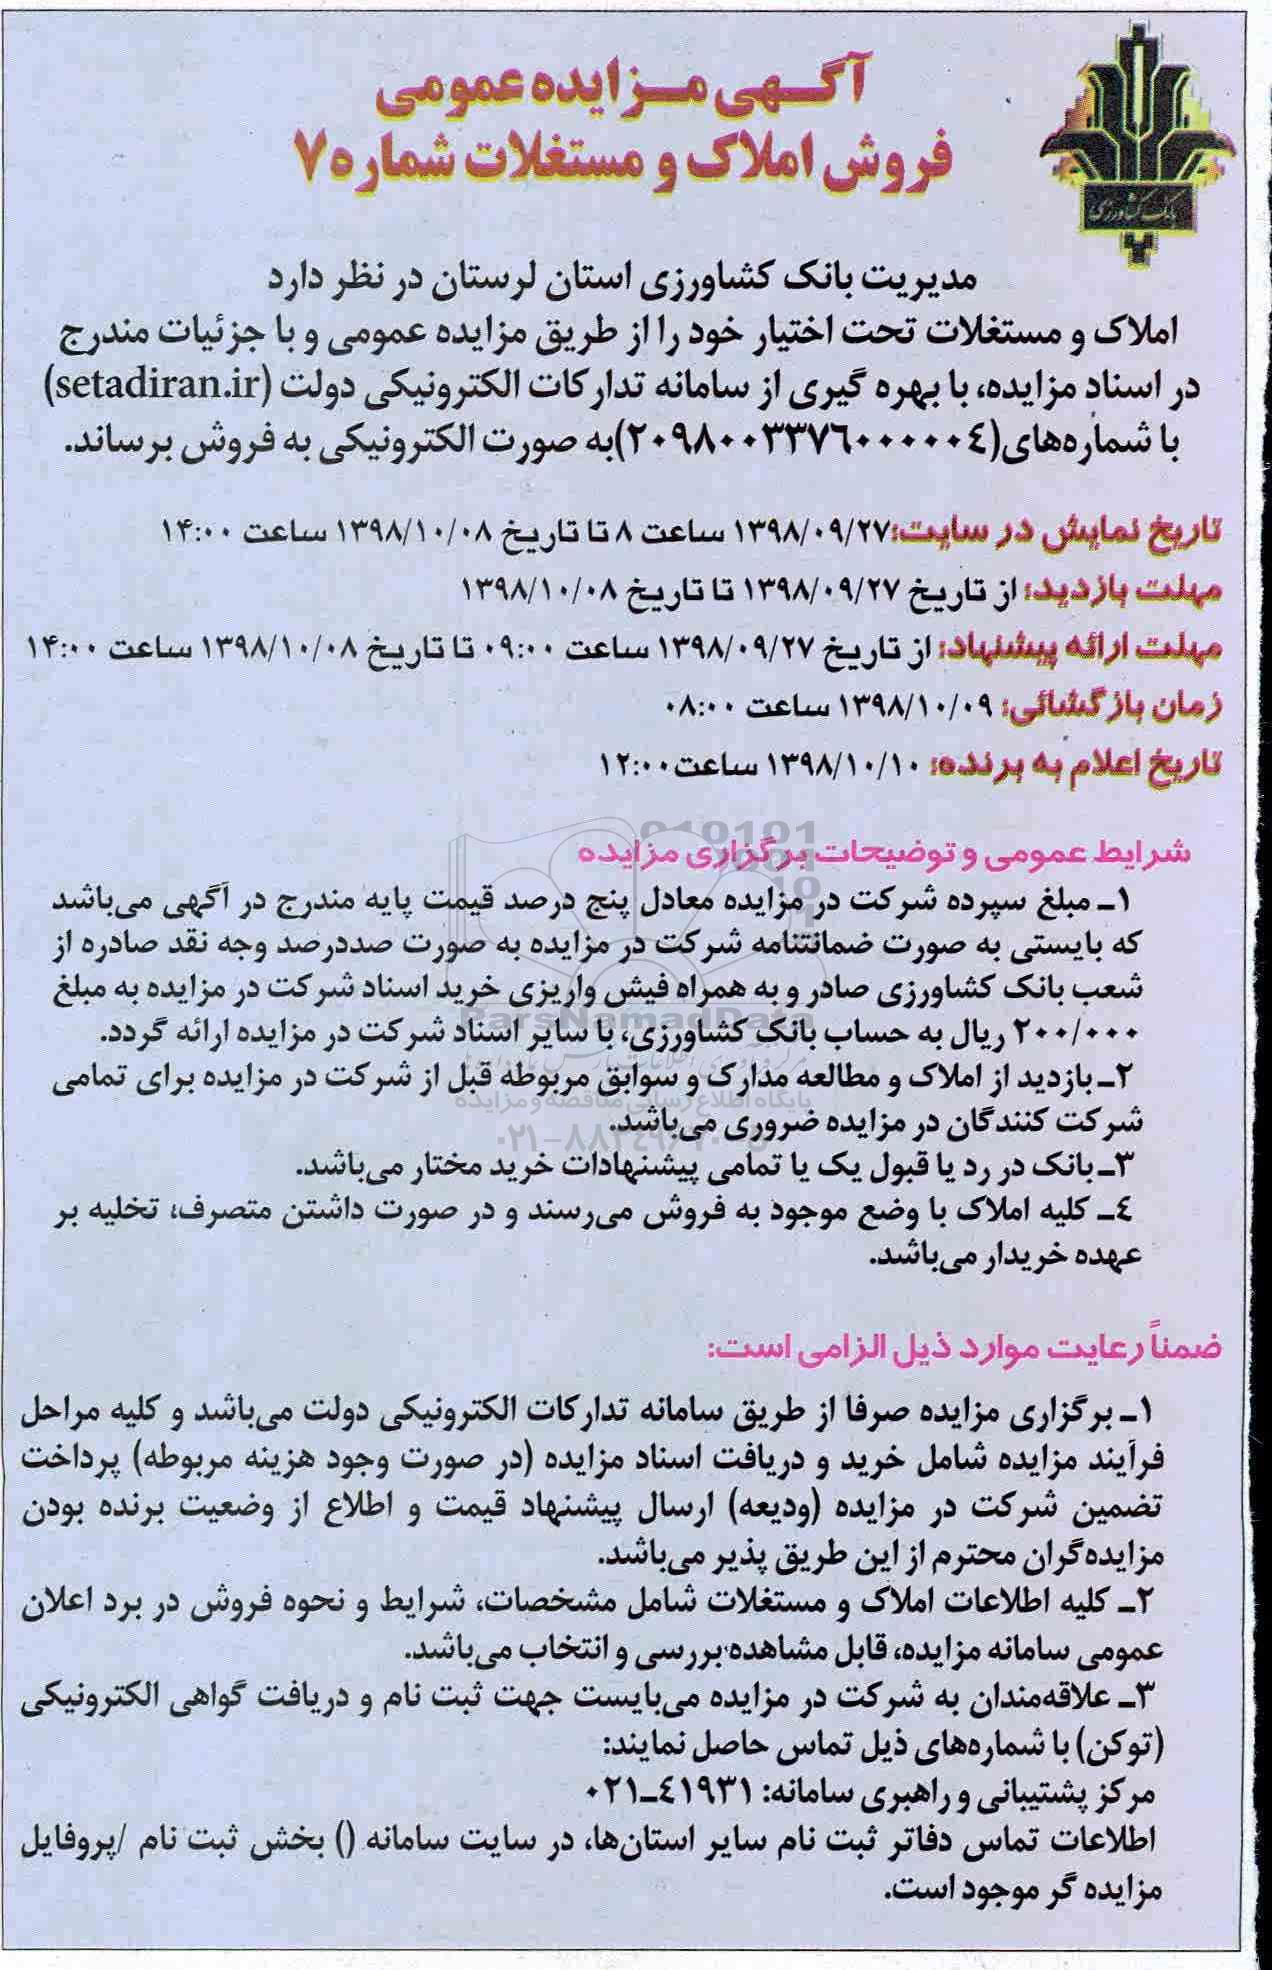 آگهی مزایده عمومی
فروش املاک و مستغلات شماره ۷
بانک کشاورزی
مدیریت بانک کشاورزی استان لرستان در نظر دارد
املاک و مستغلات تحت اختیار خود را از طریق مزایده عمومی و با جزئیات مندرج
در اسناد مزایده، با بهره گیری از سامانه تدارکات الکترونیکی دولت (setadiran.ir)
با شماره‌های(۲۰۹۸۰۰۳۳۷۶۰۰۰۰۰۴)به صورت الکترونیکی به فروش برساند.
تاریخ نمایش در سایت:۱۳۹۸/۰۹/۲۷ ساعت ۸ تا تاریخ ۱۳۹۸/۱۰/۰۸ ساعت ۱۴:۰۰
مهلت بازدید: از تاریخ ۱۳۹۸/۰۹/۲۷ تا تاریخ ۱۳۹۸/۱۰/۰۸
مهلت ارائه پیشنهاد: از تاریخ ۱۳۹۸/۰۹/۲۷ ساعت ۰۹:۰۰ تا تاریخ ۱۳۹۸/۱۰/۰۸ ساعت ۱۴:۰۰
زمان بازگشائی: ۱۳۹۸/۱۰/۰۹ ساعت ۰۸:۰۰
تاریخ اعلام به برنده: ۱۳۹۸/۱۰/۱۰ ساعت۱۲:۰۰
شرایط عمومی و توضیحات برگزاری مزایده
۱ـ مبلغ سپرده شرکت در مزایده معادل پنج درصد قیمت پایه مندرج در آگهی می‌باشد
که بایستی به صورت ضمانتنامه شرکت در مزایده به صورت صددرصد وجه نقد صادره از
شعب بانک کشاورزی صادر و به همراه فیش واریزی خرید اسناد شرکت در مزایده به مبلغ
۲۰۰/۰۰۰ ریال به حساب بانک کشاورزی، با سایر اسناد شرکت در مزایده ارائه گردد.
۲ـ بازدید از املاک و مطالعه مدارک و سوابق مربوطه قبل از شرکت در مزایده برای تمامی
شرکت کنندگان در مزایده ضروری می‌باشد.
۳ـ بانک در رد یا قبول یک یا تمامی پیشنهادات خرید مختار می‌باشد.
۴ـ کلیه املاک با وضع موجود به فروش می‌رسند و در صورت داشتن متصرف، تخلیه بر
عهده خریدار می‌باشد.
ParsNamadData
پایگاه اطلاع رسانی مناقصه و مزایده
ضمناً رعایت موارد ذیل الزامی است:
۱ـ برگزاری مزایده صرفا از طریق سامانه تدارکات الکترونیکی دولت می‌باشد و کلیه مراحل
فرآیند مزایده شامل خرید و دریافت اسناد مزایده (در صورت وجود هزینه مربوطه) پرداخت
تضمین شرکت در مزایده (ودیعه) ارسال پیشنهاد قیمت و اطلاع از وضعیت برنده بودن
مزایده‌گران محترم از این طریق پذیر می‌باشد.
۲ـ کلیه اطلاعات املاک و مستغلات شامل مشخصات، شرایط و نحوه فروش در برد اعلان
عمومی سامانه مزایده، قابل مشاهده بررسی و انتخاب می‌باشد.
۳ـ علاقه‌مندان به شرکت در مزایده می‌بایست جهت ثبت نام و دریافت گواهی الکترونیکی
(توکن) با شماره‌های ذیل تماس حاصل نمایند:
مرکز پشتیبانی و راهبری سامانه: ۴۱۹۳۱ـ۰۲۱
اطلاعات تماس دفاتر ثبت نام سایر استان‌ها، در سایت سامانه () بخش ثبت نام /پروفایل
مزایده گر موجود است.